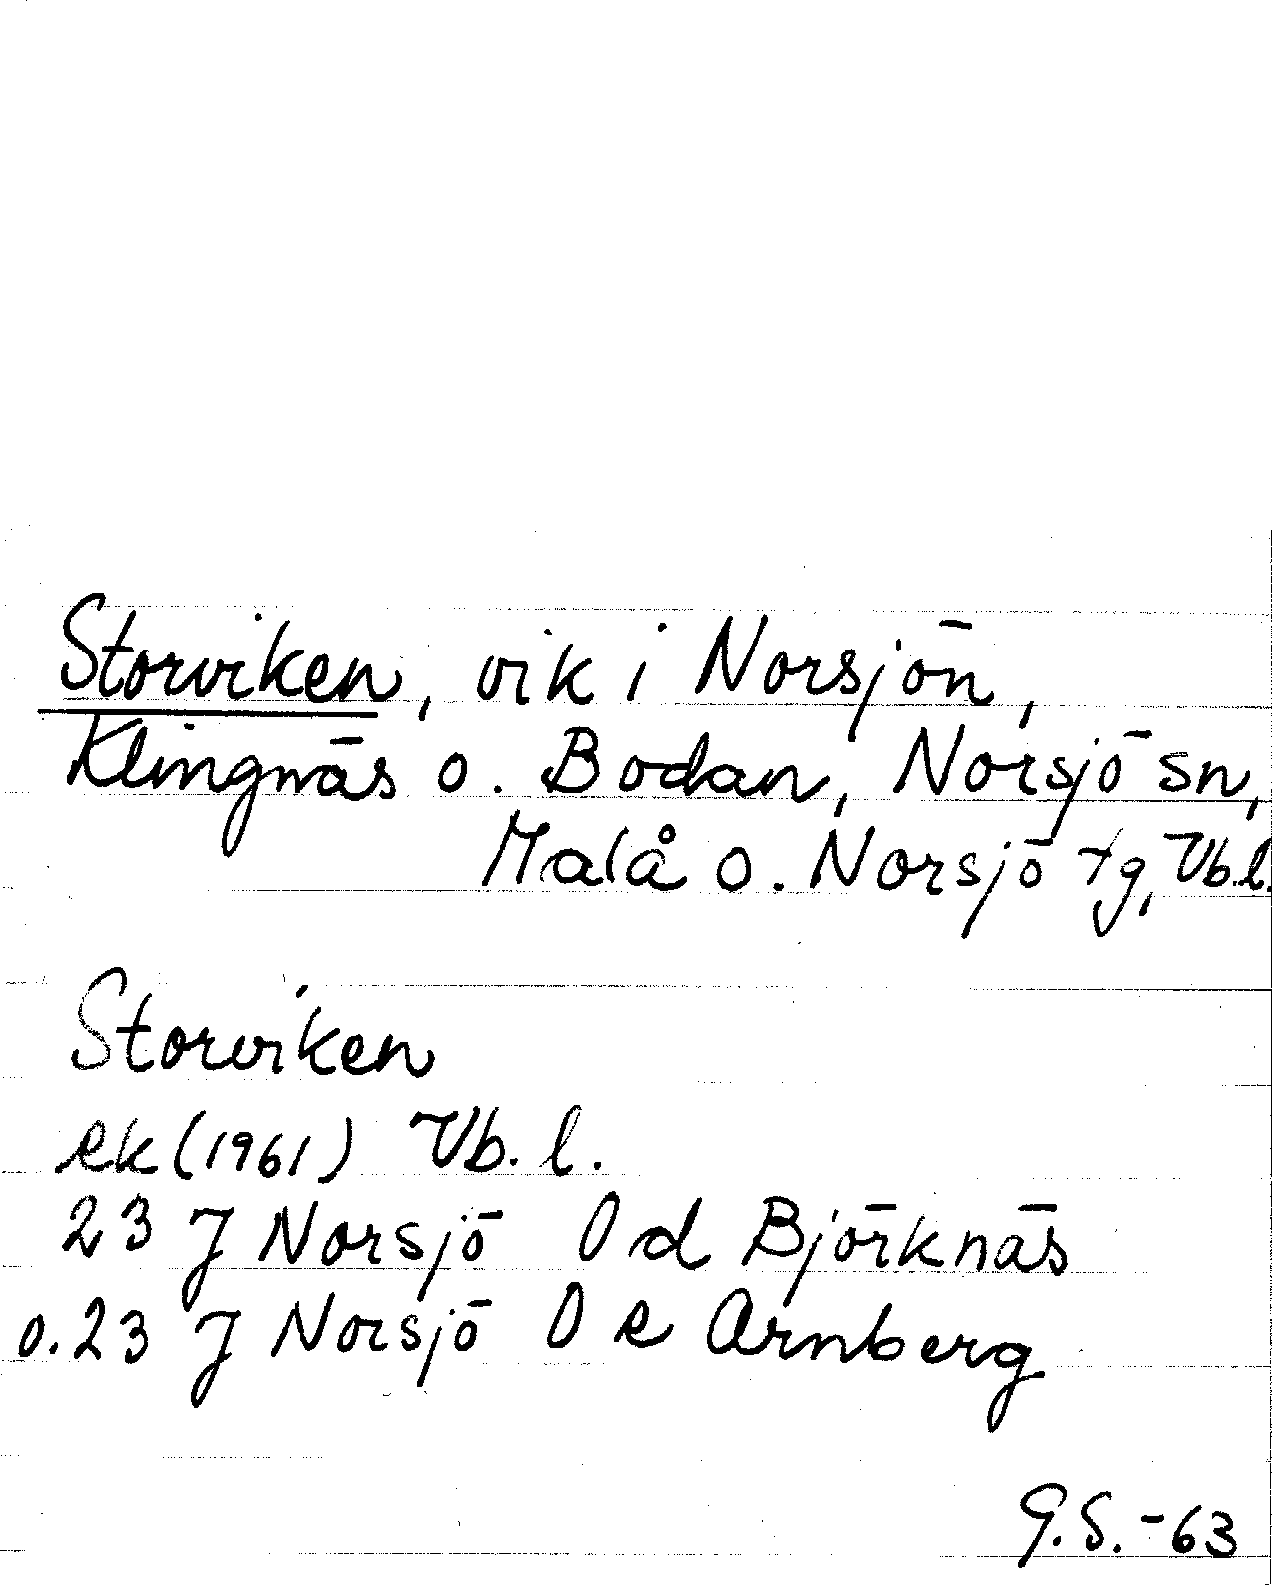 Storviken, vik i Norsjön,
Klingnäs o. Bodan, Norsjö sn,
Malå o. Norsjö tg, Vb.l.
Storviken
ek (1961) Vb. l.
23 J Norsjö 0 d Björknäs
o. 23 J Norsjö 0 e Arnberg
G.S.-63